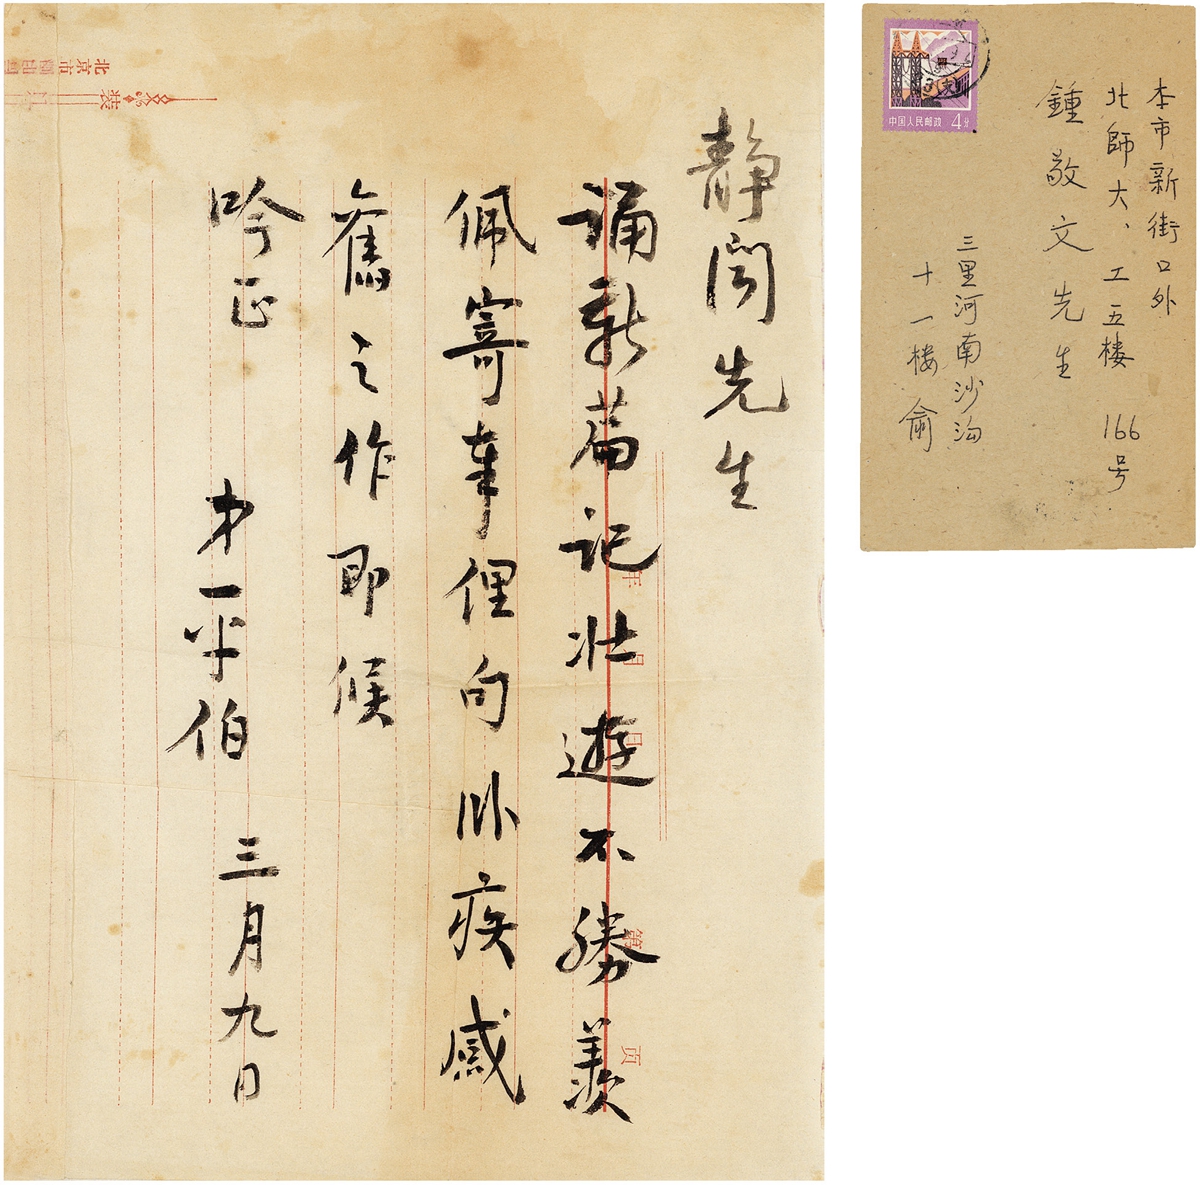 静闻先生
誦新篇記壮遊不勝羡
佩寄奉俚句卧疾感
舊之作即候
吟正
弟平伯 三月九日
北京市
装
年 月 日
第 页
中国人民邮政 4分
本市新街口外
北師大、工五楼 166号
鍾敬文先生
三里河南沙沟
十一楼俞